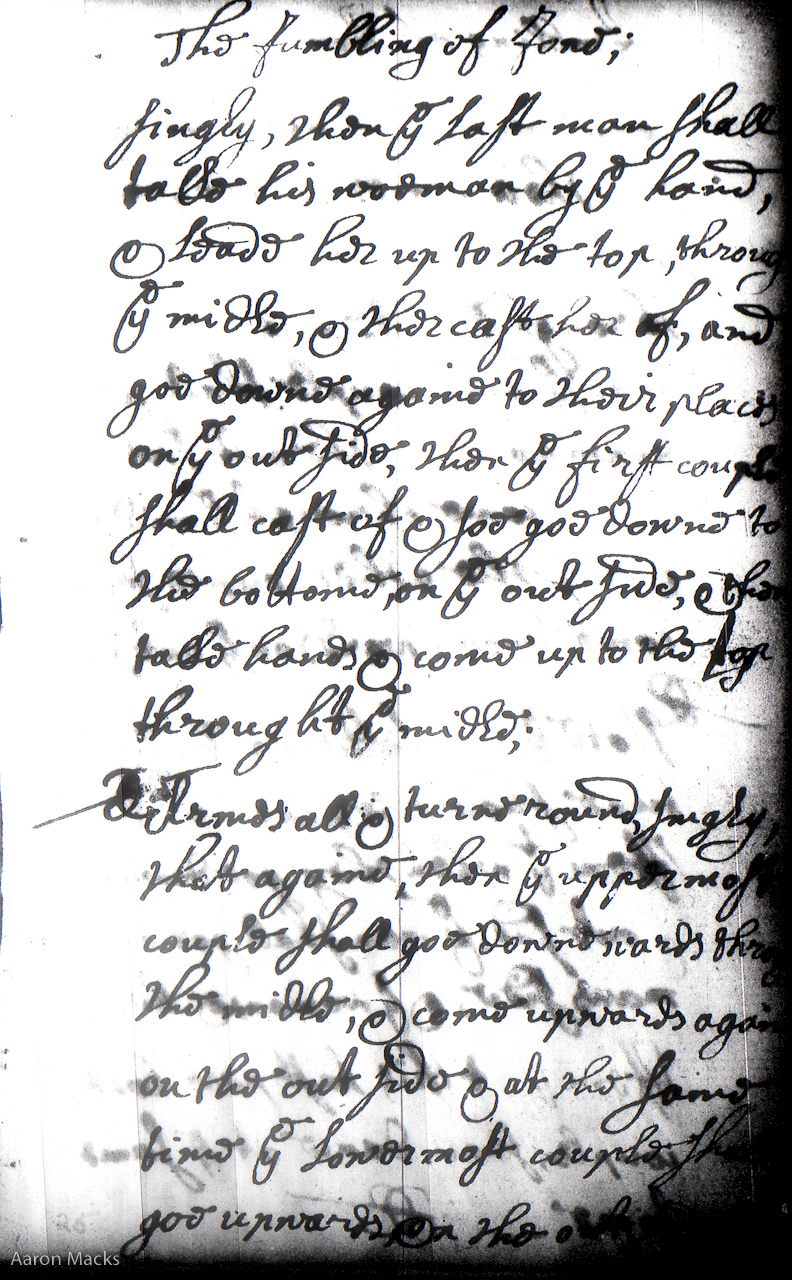 The Jumbling of Jone;
singly, then ye last man shall
take his woeman by ye hand,
& leade her up to the top, throug
ye midle, & then cast her of, and
goe downe againe to their places
on ye out side, then ye first couple
shall cast of & soe goe downe to
the bottome, on ye out side, & then
take hands & come up to the top
throught ye midle;
Armes all & turne round, singly,
that againe, then ye uppermost
couple shall goe downe wards thro
the midle, & come upwards again
on the out side & at the same
time ye lowermost couple
goe upwards, on the
Aaron Macks